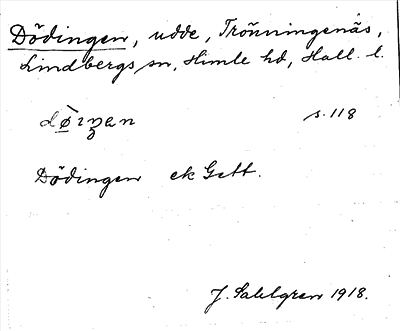 Dödingen, udde, Trönningenäs,
Lindbergs sn, Himle hd, Hall. l.
s. 118
Dödingen ek Gett.
J. Sahlgren 1918.